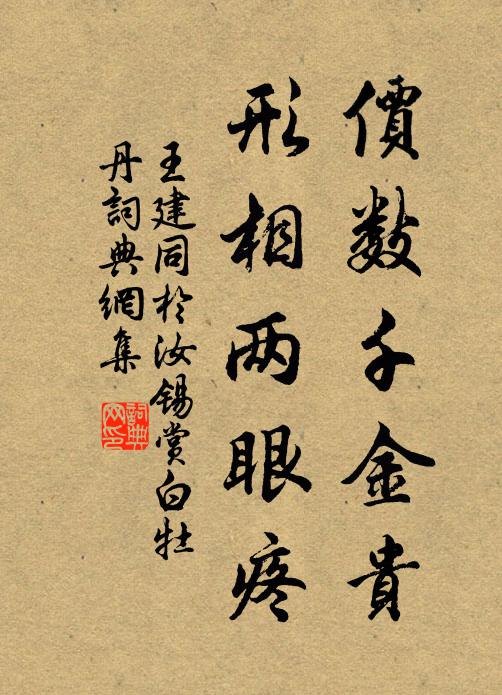 價數千金貴
形相两眼疼
王建同於汝锡赏白牡
丹詞典網集
詞典
网印